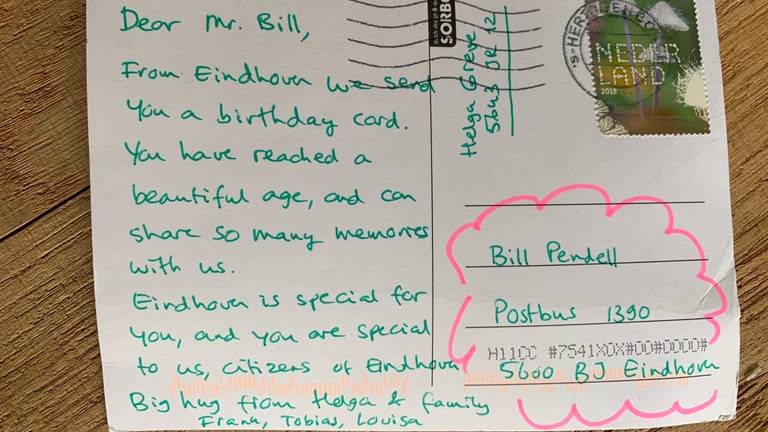 Dear Mr. Bill,
From Eindhoven we send
you a birthday card.
You have reached a
beautiful age, and can
share so many memories
with us.
Eindhoven is special for
you, and you are special
to us, citizens of Eindhoven
Big hug from Helga & family
Frank, Tobias, Louisa
SORBO
Helga Greve
5643 JR 12
'S-HERTOGEN
NEDER
LAND
2018
Bill Pendell
Postbus 1390
H11CC #7541XOX#00#0000#
5600 BJ Eindhoven